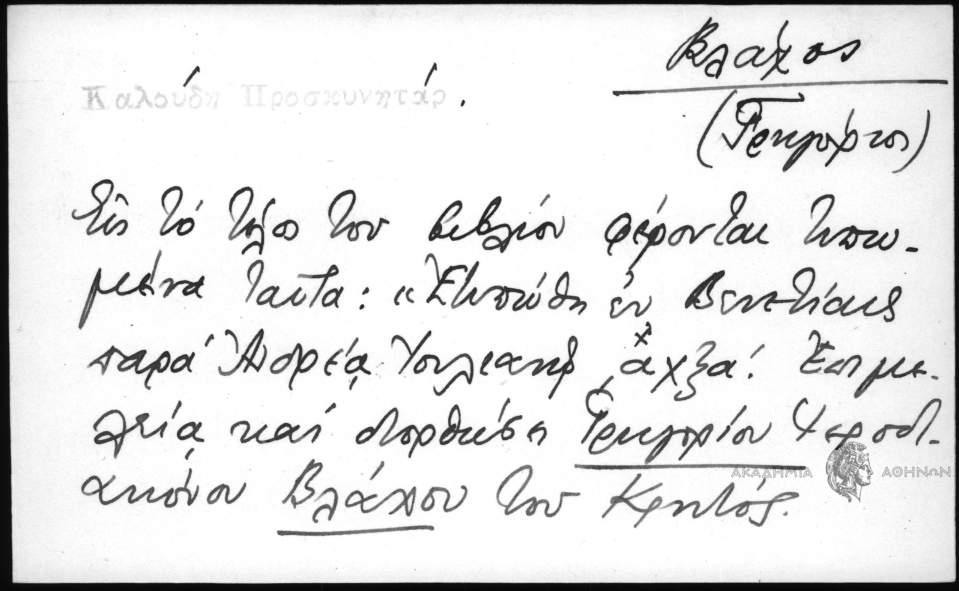 Βλάχος
Καλούδη Προσκυνητάρ.
(Γρηγόριος)
Εἰς τό τέλος του βιβλίου φέρονται τυπω-
μένα ταῦτα: «Ἐτυπώθη ἐν Βενετίαις
παρά Ἀνδρέᾳ Ἰουλιανῷ, ͵αχξα΄. Ἐπιμε-
λείᾳ καί διορθώσει Γρηγορίου Ἱεροδι-
ακόνου Βλάχου του Κρητός.
ΑΚΑΔΗΜΙΑ ΑΘΗΝΩΝ